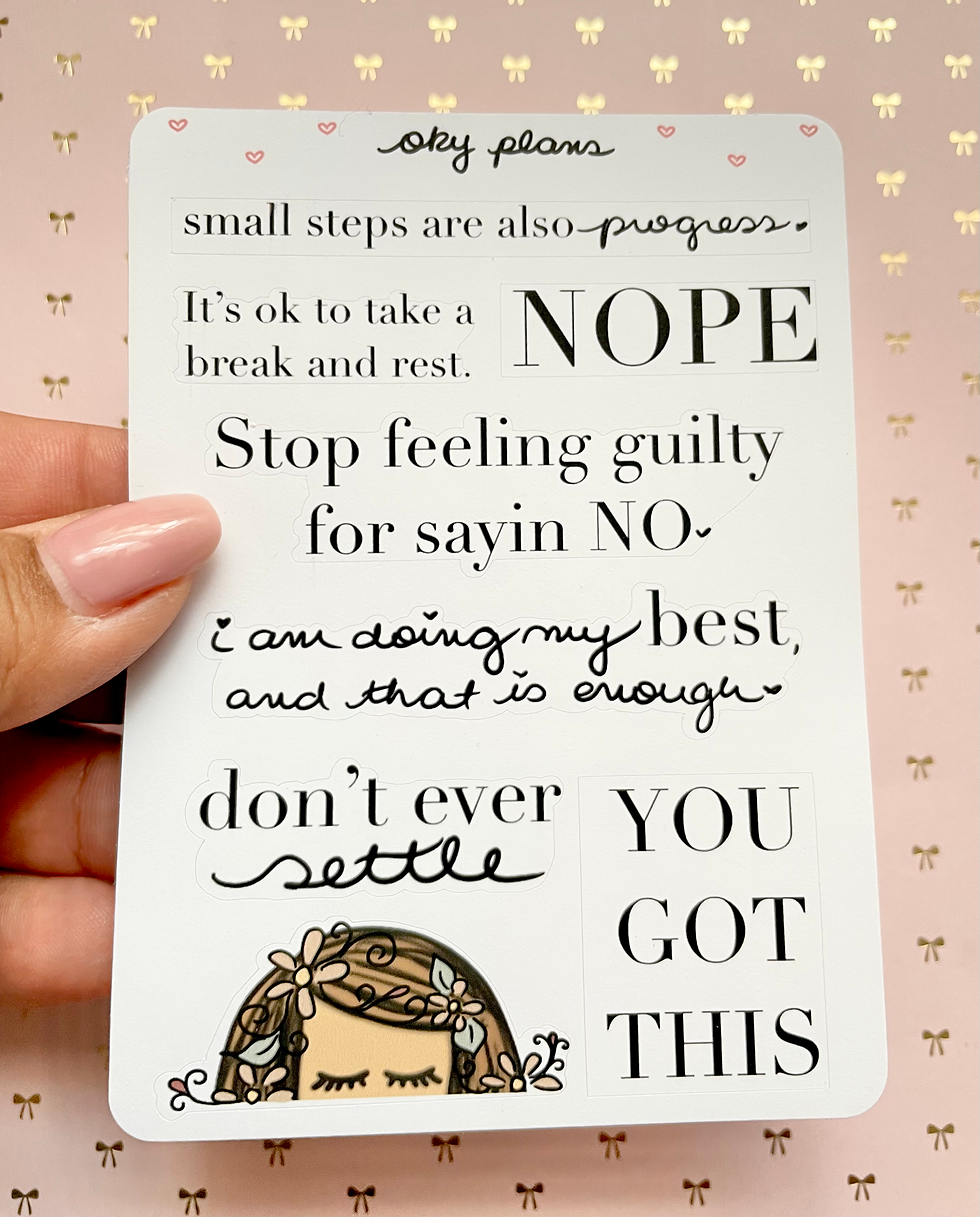 oky plans
small steps are also progress.
It's ok to take a
break and rest.
NOPE
Stop feeling guilty
for sayin NO
i am doing my best,
and that is enough
don't ever
settle
YOU
GOT
THIS